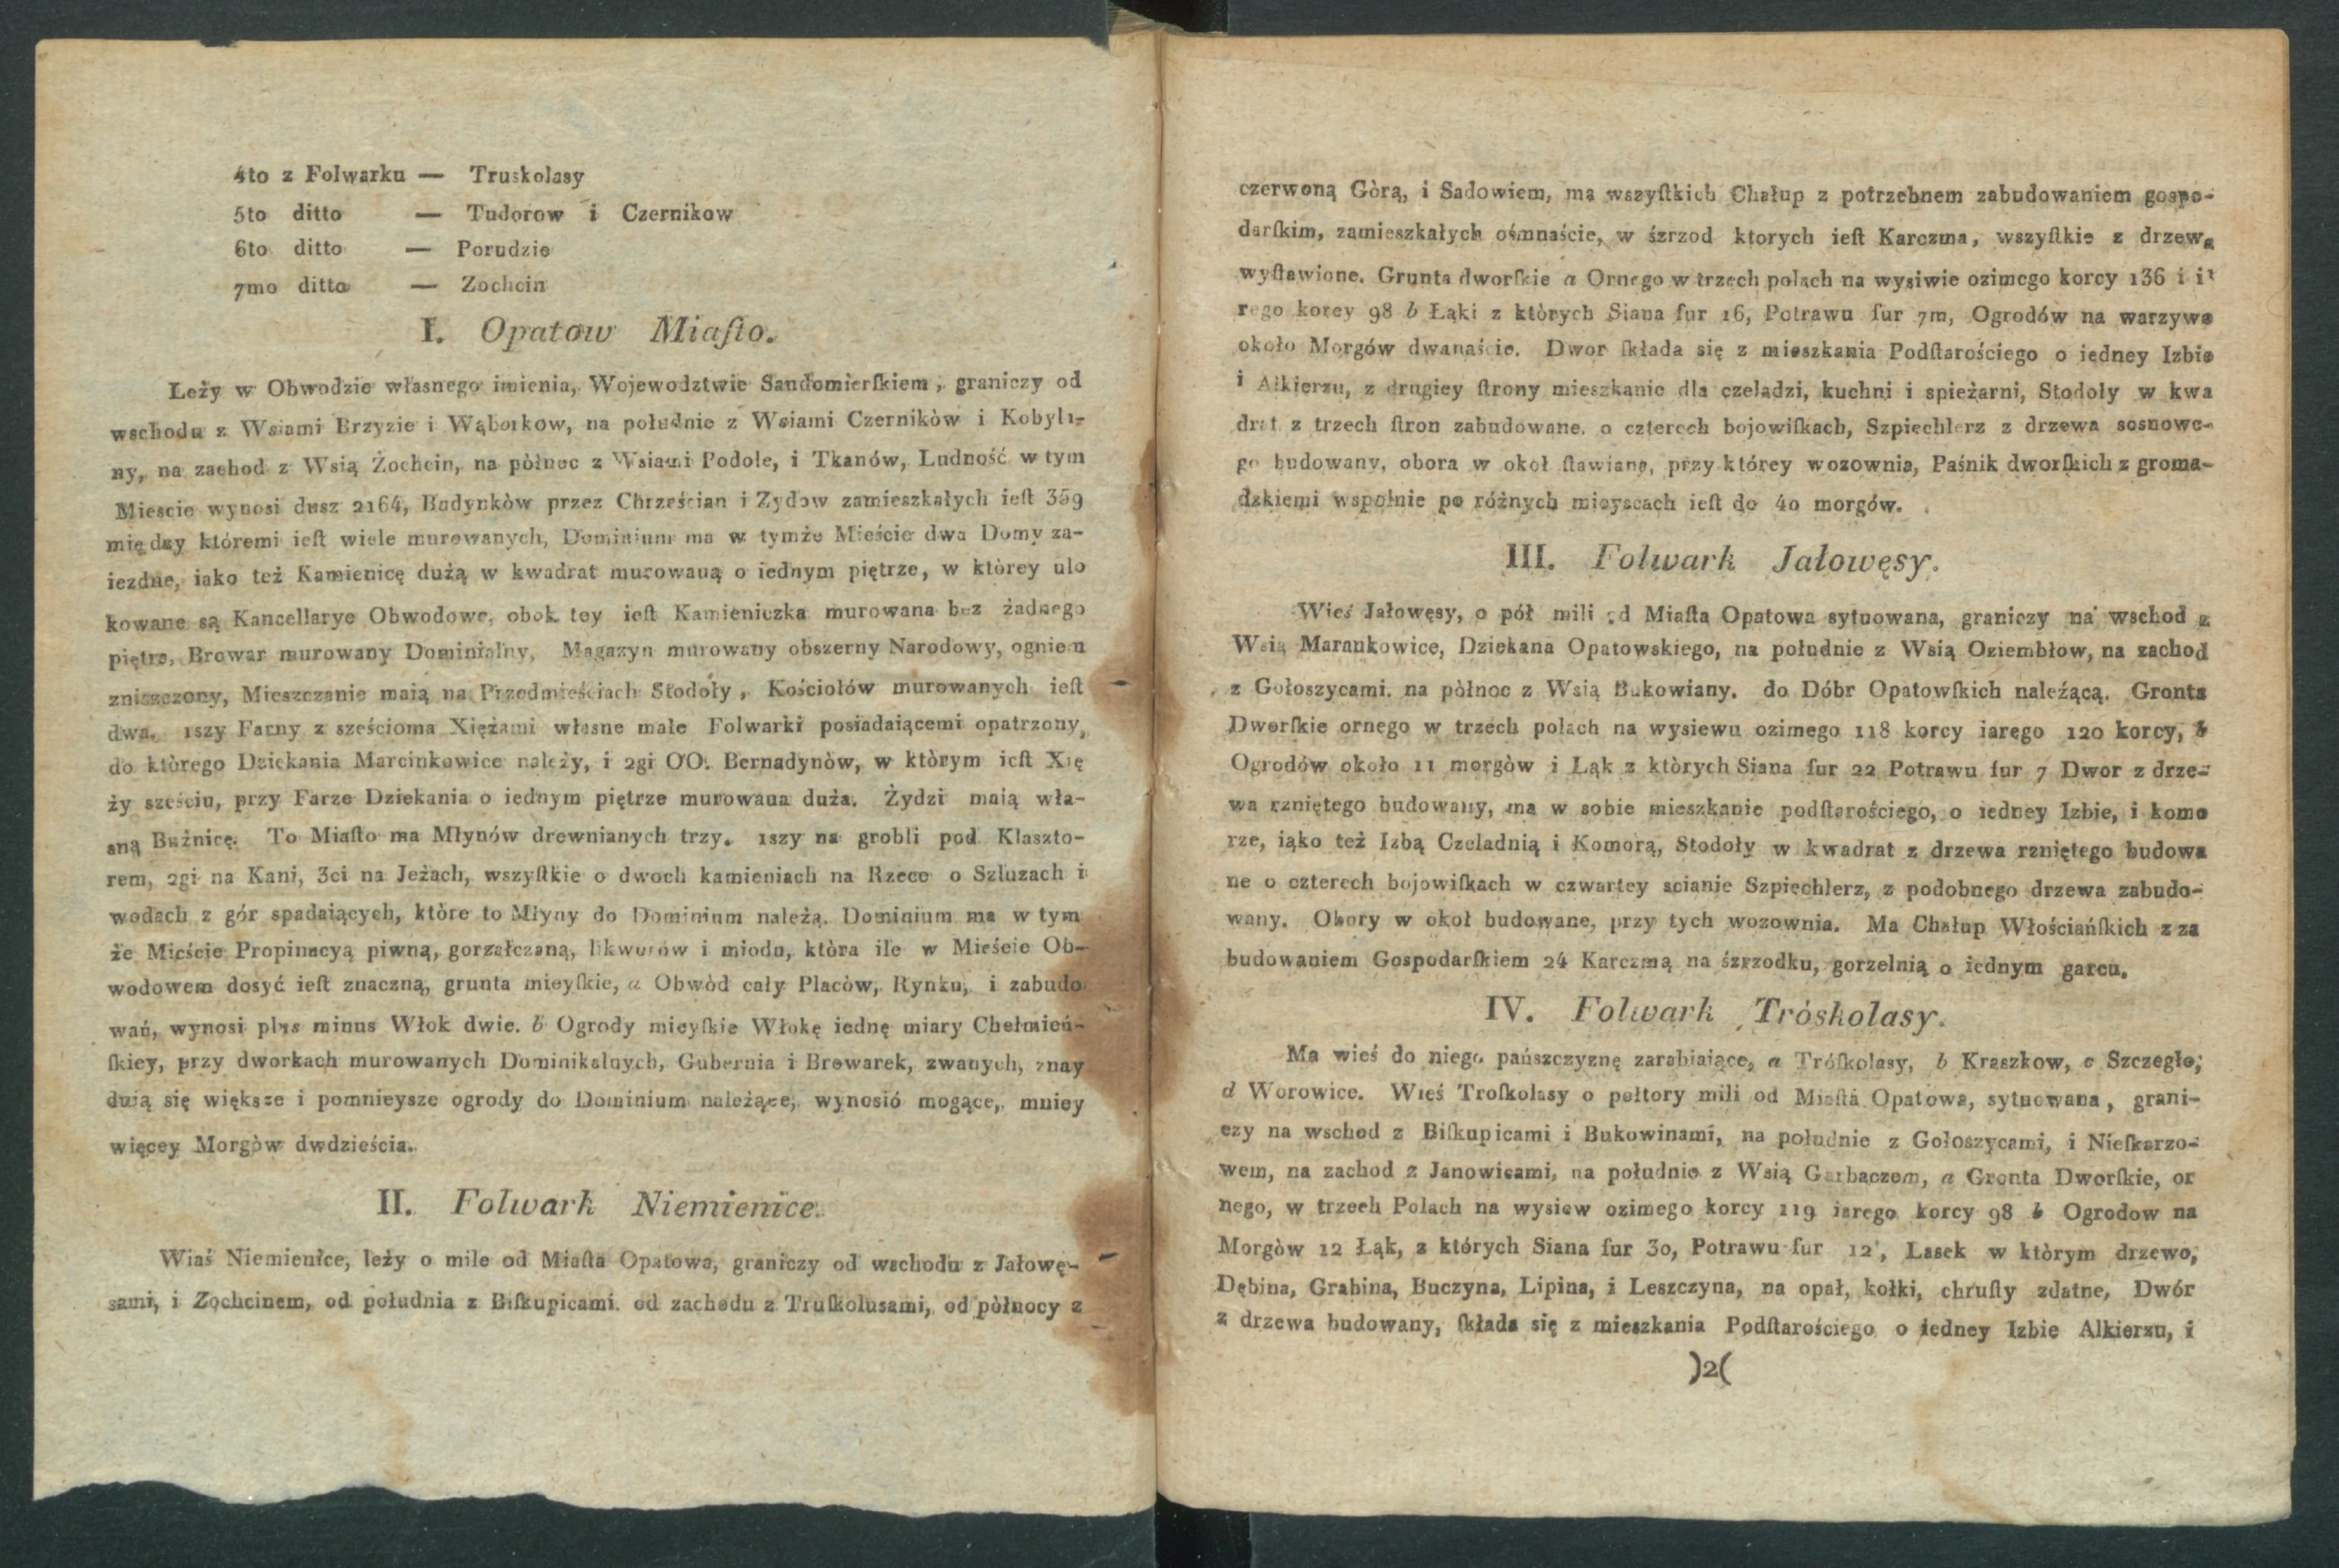 4to z Folwarku — Truskolasy
5to ditto — Tudorow i Czernikow
6to ditto — Porudzie
7mo ditto — Zochcin
I. Opatow Miaſto.
Leży w Obwodzie własnego imienia, Wojewodztwie Sandomierſkiem, graniczy od
wschodu z Wsiami Brzyzie i Wąborkow, na południe z Wsiami Czerników i Kobyli-
ny, na zachod z Wsią Żochcin, na pòłnoc z Wsiami Podole, i Tkanów, Ludność w tym
Miescie wynosi dusz 2164, Budynkòw przez Chrześcian i Zydow zamieszkałych ieſt 359
między któremi ieſt wiele murowanych, Dominium ma w tymże Mieście dwa Domy za-
iezdne, iako też Kamienicę dużą w kwadrat murowaną o iednym piętrze, w którey ulo
kowane są Kancellarye Obwodowe, obok tey ieſt Kamieniczka murowana bez żadnego
piętra, Browar murowany Dominialny, Magazyn murowany obszerny Narodowy, ogniem
zniszczony, Mieszczanie maią na Przedmieściach Stodoły, Kościołów murowanych ieſt
dwa. 1szy Farny z sześcioma Xiężami własne małe Folwarki posiadaiącemi opatrzony,
do którego Dziekania Marcinkowice należy, i 2gi OO. Bernadynòw, w którym ieſt Xię
ży sześciu, przy Farze Dziekania o iednym piętrze murowana duża. Żydzi maią wła-
sną Bużnicę. To Miaſto ma Młynów drewnianych trzy. 1szy na grobli pod Klaszto-
rem, 2gi na Kani, 3ci na Jeżach, wszyſtkie o dwoch kamieniach na Rzece o Szluzach i
wodach z gór spadaiących, które to Młyny do Dominium należą. Dominium ma w tym
że Mieście Propinacyą piwną, gorzałczaną, likworów i miodu, która ile w Mieście Ob-
wodowem dosyć ieſt znaczną, grunta mieyſkie, a Obwòd cały Placòw, Rynku, i zabudo
wań, wynosi plus minus Włok dwie. b Ogrody mieyſkie Włokę iednę miary Chełmień-
ſkiey, przy dworkach murowanych Dominikalnych, Gubernia i Browarek, zwanych, znay
duią się większe i pomnieysze ogrody do Dominium należące, wynosió mogące, mniey
więcey Morgòw dwdzieścia.
II. Folwark Niemienice.
Wiaś Niemienice, leży o mile od Miaſta Opatowa, graniczy od wschodu z Jałowę-
sami, i Zochcinem, od południa z Biſkupicami. od zachodu z Truſkolusami, od pòłnocy z
czerwoną Gòrą, i Sadowiem, ma wszyſtkich Chałup z potrzebnem zabudowaniem gospo-
darſkim, zamieszkałych ośmnaście, w śzrzod ktorych ieſt Karczma, wszyſtkie z drzewa
wyſtawione. Grunta dworſkie a Ornego w trzech polach na wysiwie ozimego korcy 136 i ia
rego korcy 98 b Łąki z których Siana fur 16, Potrawu fur 7m, Ogrodów na warzywa
około Morgów dwanaście. Dwor ſkłada się z mieszkania Podſtarościego o iedney Izbie
i Alkierzu, z drugiey ſtrony mieszkanie dla czeladzi, kuchni i spieżarni, Stodoły w kwa
drat z trzech ſtron zabudowane. o czterech bojowiſkach, Szpiechlerz z drzewa sosnowe-
go budowany, obora w okoł ſtawiana, przy którey wozownia, Paśnik dworſkich z groma-
dzkiemi wspolnie po różnych mieyscach ieſt do 40 morgów.
III. Folwark Jałowęsy.
Wieś Jałowęsy, o pół mili od Miaſta Opatowa sytuowana, graniczy na wschod z
Wsią Marankowice, Dziekana Opatowskiego, na południe z Wsią Oziembłow, na zachod
z Gołoszycami. na pòłnoc z Wsią Bukowiany. do Dóbr Opatowſkich należącą. Gronta
Dworſkie ornego w trzech polach na wysiewu ozimego 118 korcy iarego 120 korcy, b
Ogrodów około 11 morgòw i Łąk z których Siana fur 22 Potrawu fur 7 Dwor z drze-
wa rzniętego budowany, ma w sobie mieszkanie podſtarościego, o iedney Izbie, i komo
rze, iąko też Izbą Czeladnią i Komorą, Stodoły w kwadrat z drzewa rzniętego budowa
ne o czterech bojowiſkach w czwartey scianie Szpiechlerz, z podobnego drzewa zabudo-
wany. Obory w okoł budowane, przy tych wozownia. Ma Chałup Włościańſkich z za
budowaniem Gospodarſkiem 24 Karczmą na śzrzodku, gorzelnią o iednym garcu.
IV. Folwark Tròskolasy.
Ma wieś do niego pańszczyznę zarabiaiące, a Tróſkolasy, b Kraszkow, c Szczegło;
d Worowice. Wieś Troſkolasy o połtory mili od Miaſta Opatowa, sytuowana, grani-
czy na wschod z Biſkupicami i Bukowinami, na południe z Gołoszycami, i Nieſkarzo-
wem, na zachod z Janowicami, na południe z Wsią Garbaczem, a Gronta Dworſkie, or
nego, w trzech Polach na wysiew ozimego korcy 119 iarego korcy 98 b Ogrodow na
Morgòw 12 Łąk, z których Siana fur 30, Potrawu fur 12, Lasek w którym drzewo,
Dębina, Grabina, Buczyna, Lipina, i Leszczyna, na opał, kołki, chruſty zdatne, Dwór
z drzewa budowany, ſkłada się z mieszkania Podſtarościego o iedney Izbie Alkierzu, i
)2(